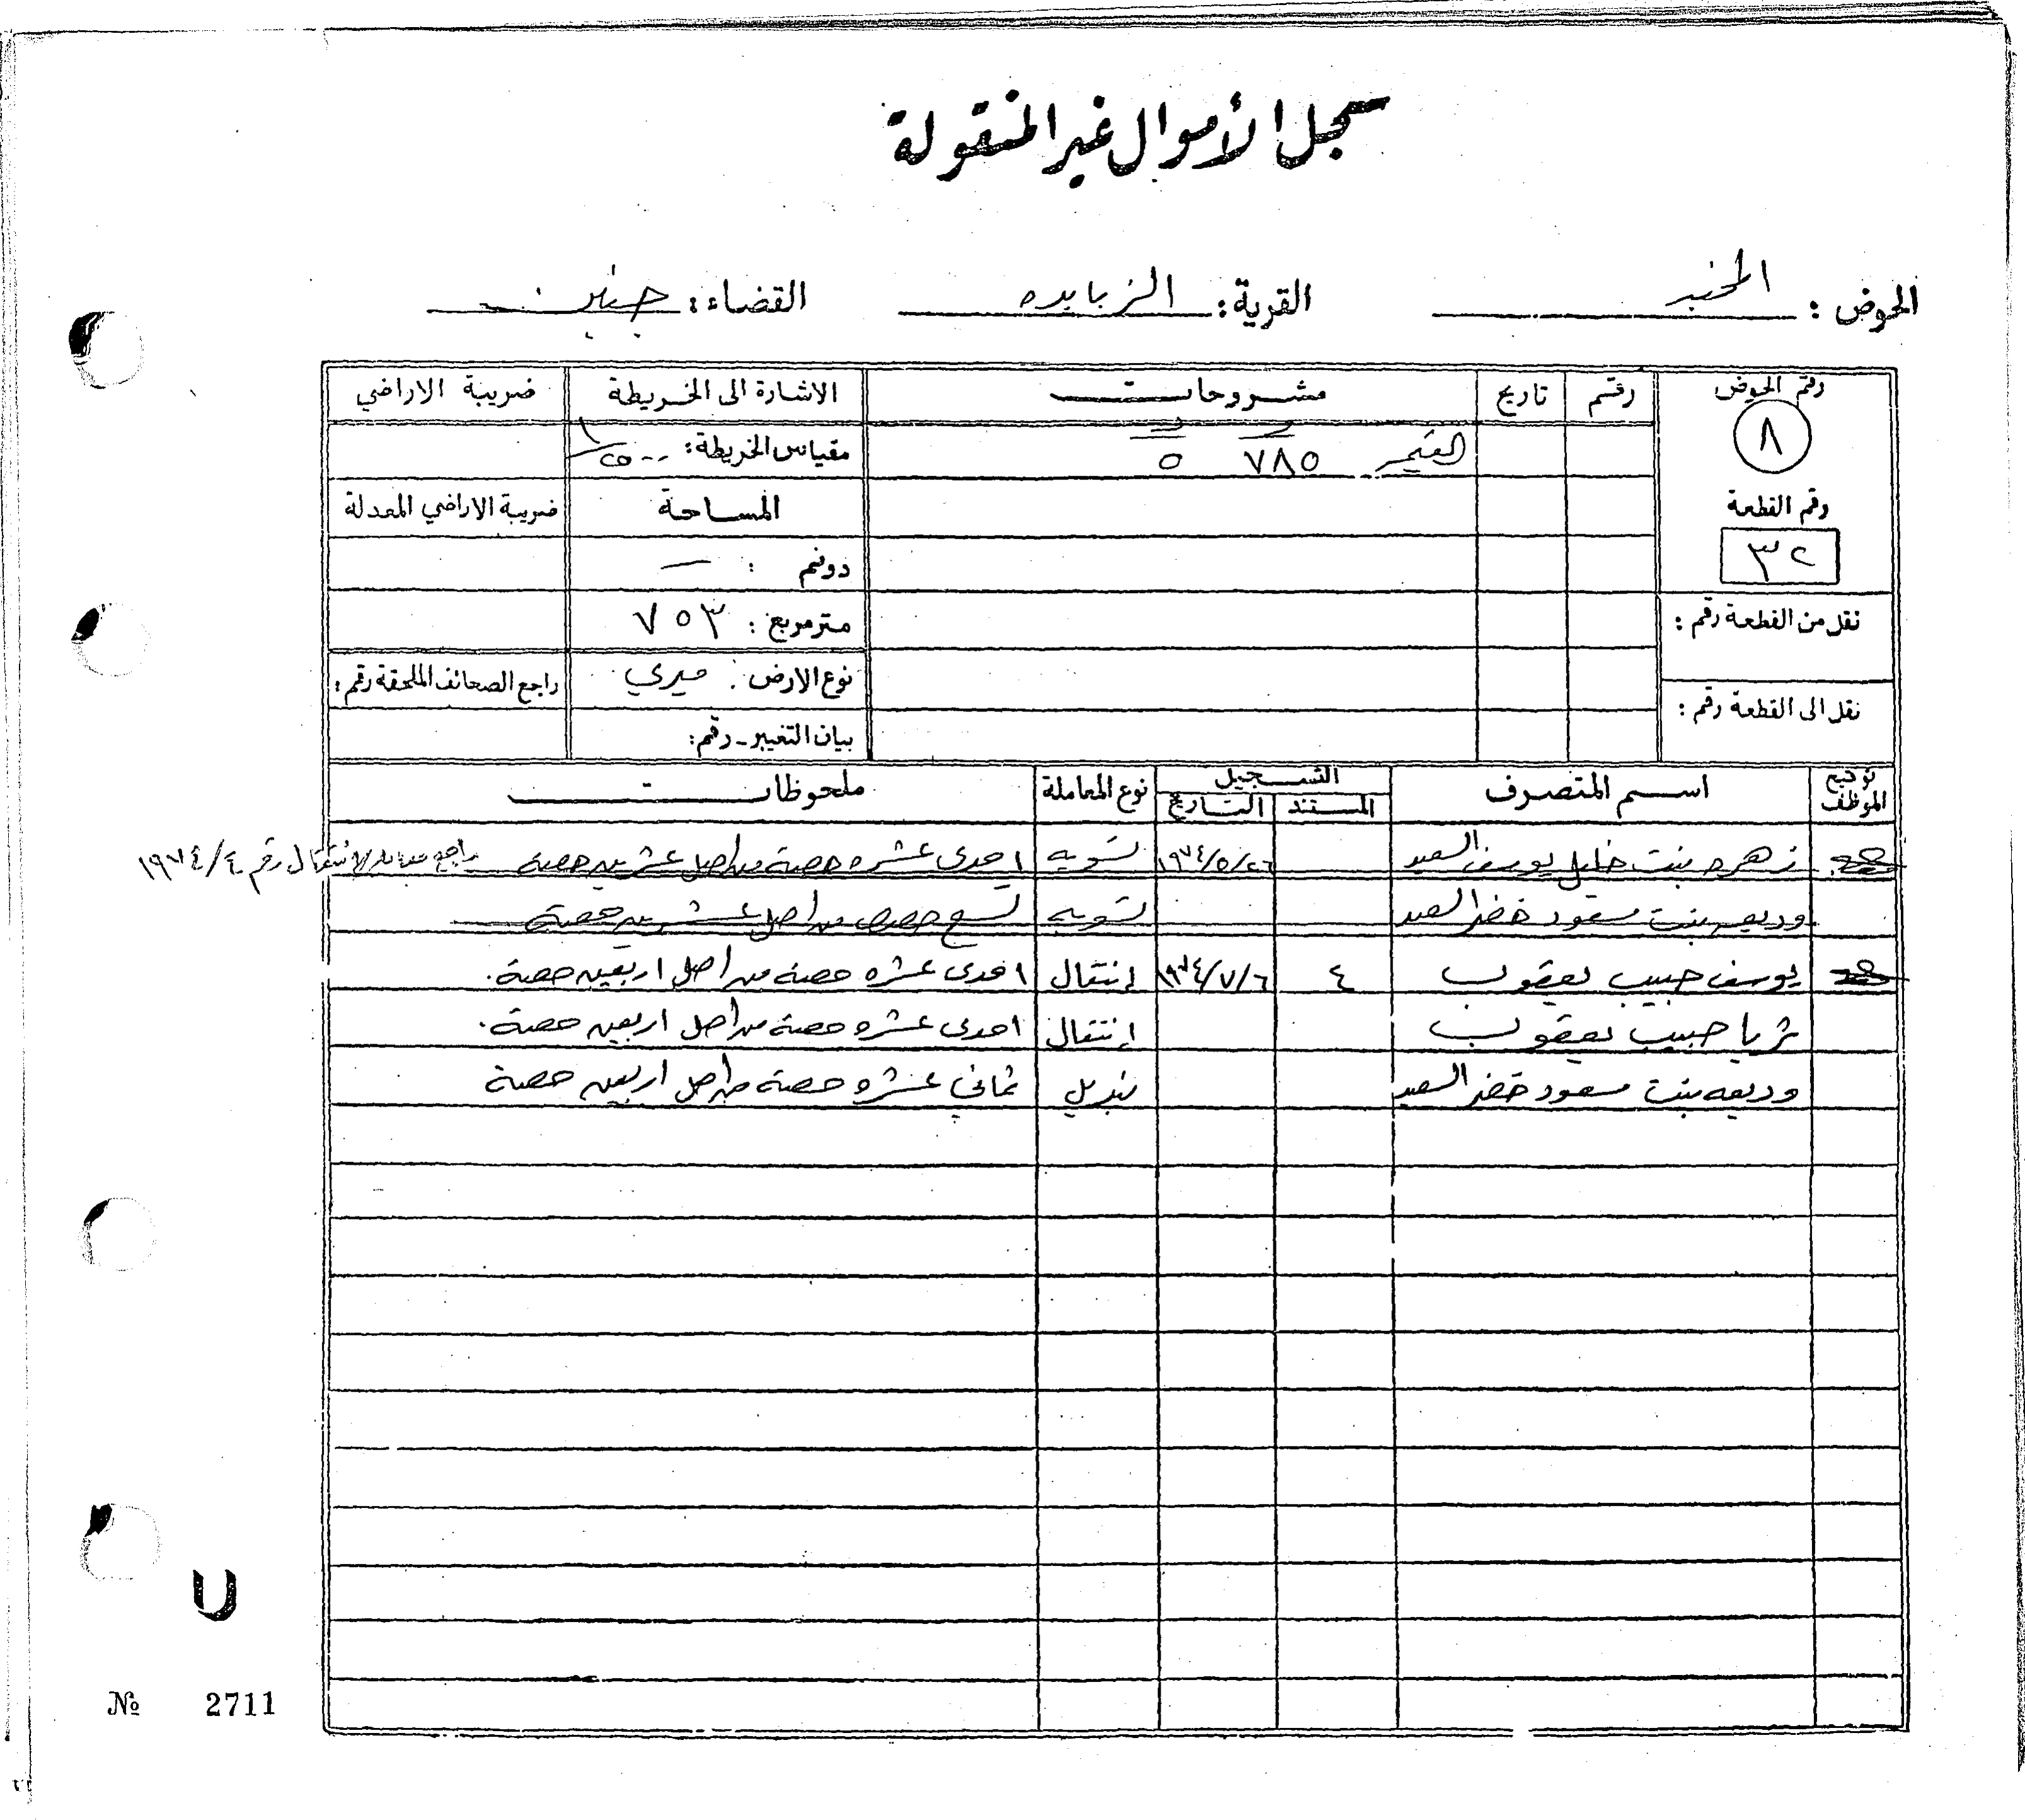 سجل الأموال غير المنقولة
الحوض : القرية : الزبابده القضاء : جنين
رقم الحوض رقم تاريخ مشروحات الاشارة الى الخريطة ضريبة الاراضي
٨ ٧٨٥ ٥ مقياس الخريطة : ١/٢٥٠٠
رقم القطعة المساحة ضريبة الاراضي المعدلة
٣٢ دونم : —
نقل من القطعة رقم : متر مربع : ٧٥٣
نوع الارض : ميري راجع الصحائف الملحقة رقم :
نقل الى القطعة رقم : بيان التغيير - رقم :
توقيع الموظف اسم المتصرف التسجيل نوع المعاملة ملحوظات
المستند التاريخ
زهره بنت خليل يوسف السعيد ١٩٧٤/٥/٢٦ تسويه احدى عشره حصة من اصل عشرين حصة راجع معاملة الانتقال رقم ١٩٧٤/٤
وديعه بنت مسعود خضر السعيد تسويه تسع حصص من اصل عشرين حصة
يوسف حبيب يعقوب ٤ ١٩٧٤/٧/٦ إنتقال احدى عشره حصة من اصل اربعين حصة.
ثريا حبيب يعقوب إنتقال احدى عشره حصة من اصل اربعين حصة.
وديعه بنت مسعود خضر السعيد تبديل ثماني عشره حصة من اصل اربعين حصة
U
№ 2711